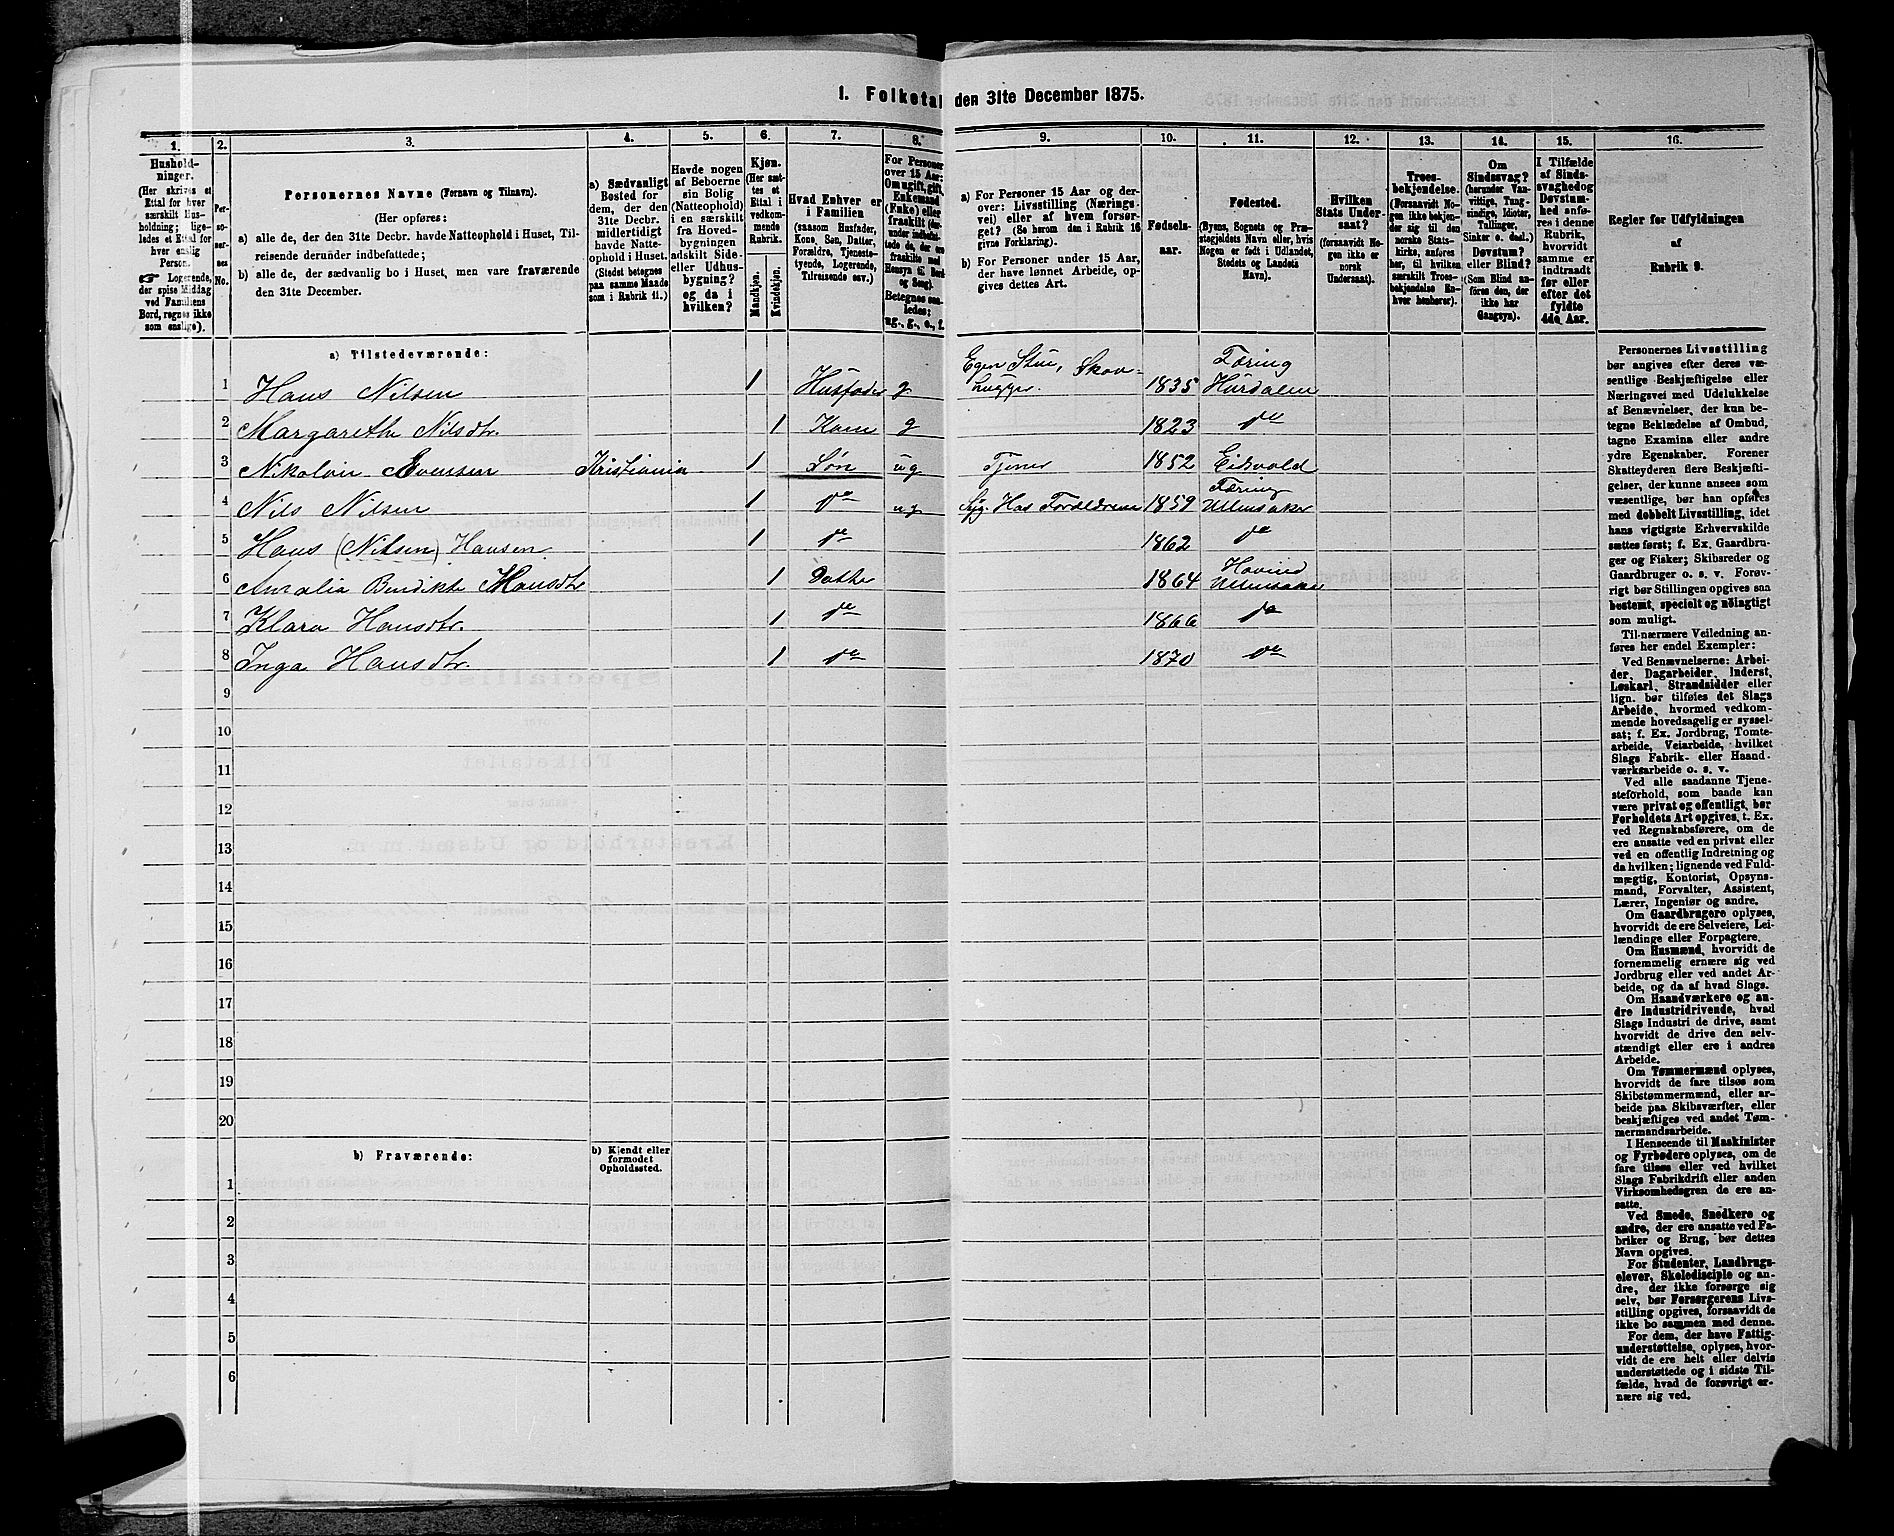 1. Folketal den 31te December 1875.
1. 2. 3. 4. 5. 6. 7. 8. 9. 10. 11. 12. 13. 14. 15. 16.
Hushold-
ninger.
(Her skrives et
Ettal for hver
særskilt Hus-
holdning; lige-
ledes et Ettal for
hver enslig
Person.
☞ Logerende,
der spise Middag
ved Familiens
Bord, regnes ikke
som enslige).
Per-
so-
ner-
nes
No.
Personernes Navne (Fornavn og Tilnavn).
(Her opføres:
a) alle de, der den 31te Decbr. havde Natteophold i Huset, Til-
reisende derunder indbefattede;
b) alle de, der sædvanlig bo i Huset, men vare fraværende
den 31te December.
a) Sædvanligt
Bosted for
dem, der den
31te Decbr.
midlertidigt
havde Natte-
ophold i Huset.
(Stedet betegnes
paa samme Maade
som i Rubrik 11.)
Havde nogen
af Beboerne
sin Bolig
(Natteophold)
i en særskilt
fra Hoved-
bygningen
adskilt Side-
eller Udhus-
bygning?
og da i
hvilken?
Kjøn.
(Her sæt-
tes et
Ettal i
vedkom-
mende
Rubrik.
Mandkjøn.
Kvindekjøn.
Hvad Enhver er
i Familien
(saasom Husfader,
Kone, Søn, Datter,
Forældre, Tjeneste-
tyende, Logerende,
Tilreisende osv.)
For Personer
over 15 Aar:
Om ugift, gift,
Enkemand
(Enke) eller
fraskilt
Betegnes saa-
ledes:
ug., g., e., f.
a) For Personer 15 Aar og der-
over: Livsstilling (Nærings-
vei) eller af hvem forsør-
get? (Se herom den i Rubrik 16
givne Forklaring).
b) For Personer under 15 Aar,
der have lønnet Arbeide, op-
gives dettes Art.
Fødsels-
aar.
Fødested.
(Byens, Sognets og Præ-
stegjeldets Navn eller, hvis
Nogen er født i Udlandet,
Stedets og Landets
Navn).
Hvilken
Stats Under-
saat?
(forsaavidt No-
gen ikke er
norsk
Undersaat).
Troes-
bekjendelse.
(Forsaavidt No-
gen ikke bekjen-
der sig til den
norske Stats-
kirke, anføres
her, til hvilken
særskilt Troes-
bekjendelse En-
hver henhører).
Om
Sindssvag?
(herunder Van-
vittige, Tung-
sindige, Idioter,
Tullinger,
Sinker o. desl.)
Døvstum?
eller Blind?
(Som Blind an-
føres den, der
ikke har
Gangsyn).
I Tilfælde
af Sinds-
svaghed og
Døvstum-
hed anfø-
res i denne
Rubrik,
hvorvidt
samme er
indtraadt
før eller
efter det
fyldte
4de Aar.
Regler for Udfyldningen
af
Rubrik 9.
a) Tilstedeværende:
1 Hans Nilsen 1 Husfader g Egen Stue, Skov-hugger. 1835 Færing Hurdalen
2 Margarethe Nilsdtr. 1 Kone g 1823 do
3 Nikolai Evensen Kristiania 1 Søn ug Tjener 1852 Eidsvold
4 Nils Nilsen 1 do ug Hos Forældrene 1859 Færing Ullensaker
5 Hans (Nilsen) Hansen 1 do 1862 do
6 Amalia Bendikte Hansdtr 1 Datter 1864 Hovind Ullensaker
7 Klara Hansdtr. 1 do 1866 do
8 Inga Hansdtr. 1 do 1870 do
9
10
11
12
13
14
15
16
17
18
19
20
b) Fraværende:
b) Kjendt eller
formodet
Opholdssted.
1
2
3
4
5
6
Personernes Livsstilling
bør angives efter deres væ-
sentlige Beskjæftigelse eller
Næringsvei med Udelukkelse
af Benævnelser, der kun be-
tegne Beklædelse af Ombud,
tagne Examina eller andre
ydre Egenskaber. Forener
Skatteyderen flere Beskjæfti-
gelser, der kunne ansees som
væsentlige, bør han opføres
med dobbelt Livsstilling, idet
hans vigtigste Erhvervskilde
sættes først; f. Ex. Gaardbru-
ger og Fisker; Skibsreder og
Gaardbruger o. s. v. Forøv-
rigt bør Stillingen opgives saa
bestemt, specielt og nøiagtigt
som muligt.
Til nærmere Veiledning an-
føres her endel Exempler:
Ved Benævnelserne: Arbei-
der, Dagarbeider, Inderst,
Løskarl, Strandsidder eller
lign. bør tilføies det Slags
Arbeide, hvormed vedkom-
mende hovedsagelig er syssel-
sat; f. Ex. Jordbrug, Tomte-
arbeide, Veiarbeide, hvilket
Slags Fabrik- eller Haand-
værksarbeide o. s. v.
Ved alle saadanne Tjene-
steforhold, som baade kan
være privat og offentligt, bør
Forholdets Art opgives, t. Ex.
ved Regnskabsførere, om de
ere ansatte ved en privat eller
ved en offentlig Indretning og
da hvilken; lignende ved Fuld-
mægtig, Kontorist, Opsyns-
mand, Forvalter, Assistent,
Lærer, Ingeniør og andre.
Om Gaardbrugere oplyses,
hvorvidt de ere Selveiere, Lei-
lændinge eller Forpagtere.
Om Husmænd, hvorvidt de
fornemmelig ernære sig ved
Jordbrug eller ved andet Ar-
beide, og da af hvad Slags.
Om Haandværkere og an-
dre Industridrivende, hvad
Slags Industri de drive, samt
hvorvidt de drive den selv-
stændigt eller ere i andres
Arbeide.
Om Tømmermænd oplyses,
hvorvidt de fare tilsøs som
Skibstømmermænd, eller ar-
beide paa Skibsværfter, eller
beskjæftiges ved andet Tøm-
mermandsarbeide.
I Henseende til Maskinister
og Fyrbødere oplyses, om de
fare tilsøs eller ved hvilket
Slags Fabrikdrift eller anden
Virksomhedsgren de ere an-
satte.
Ved Smede, Snedkere og
andre, der ere ansatte ved Fa-
briker og Brug, bør dettes
Navn opgives.
For Studenter, Landbrugs-
elever, Skoledisciple og an-
dre, der ikke forsørge sig
selv, bør Forsørgerens Livs-
stilling opgives, forsaavidt de
ikke bo sammen med denne.
For dem, der have Fattig-
understøttelse, oplyses, hvor-
vidt de ere helt eller delvis
understøttede og i sidste Til-
fælde, hvad de forøvrigt er-
nære sig ved.